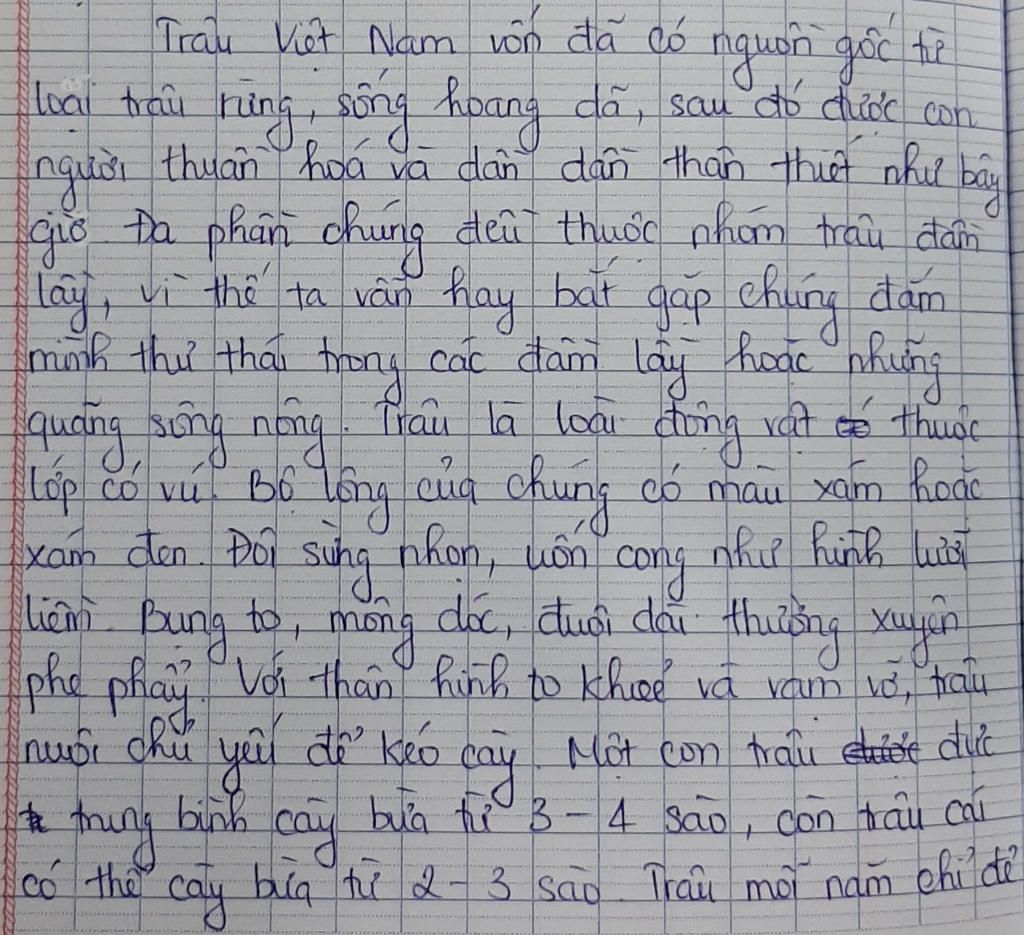 Trâu Việt Nam vốn đã có nguồn gốc từ
loài trâu rừng, sống hoang dã, sau đó được con
người thuần hoá và dần dần thân thiết như bây
giờ. Đa phần chúng đều thuộc nhóm trâu đầm
lầy, vì thế ta vẫn hay bắt gặp chúng đắm
mình thư thái trong các đầm lầy hoặc những
quãng sông nông. Trâu là loài động vật thuộc
lớp có vú. Bộ lông của chúng có màu xám hoặc
xám đen. Đôi sừng nhọn, uốn cong như hình lưỡi
liềm. Bụng to, mông dốc, đuôi dài thường xuyên
phe phẩy. Với thân hình to khoẻ và vạm vỡ, trâu
nuôi chủ yếu để kéo cày. Một con trâu đực
trung bình cày bừa từ 3 - 4 sào, còn trâu cái
có thể cày bừa từ 2 - 3 sào. Trâu mỗi năm chỉ đẻ